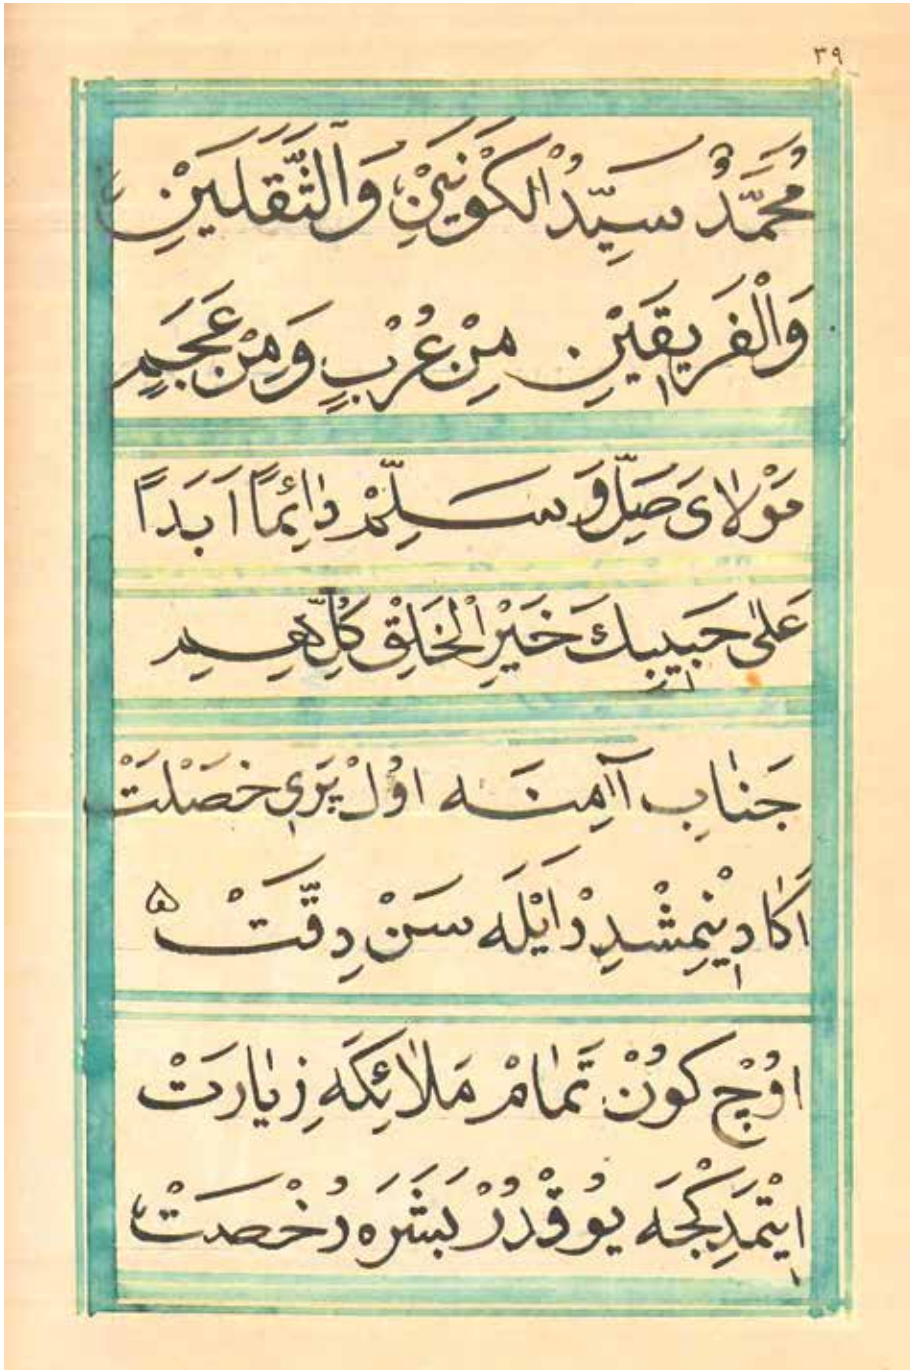 ٣٩
مُحَمَّدٌ سَيِّدُ الْكَوْنَيْنِ وَالثَّقَلَيْنِ
وَالْفَرِيقَيْنِ مِنْ عُرْبٍ وَمِنْ عَجَمٍ
مَوْلَايَ صَلِّ وَسَلِّمْ دَائِمًا اَبَدًا
عَلٰى حَبِيبِكَ خَيْرِ الْخَلْقِ كُلِّهِمِ
جَنَابِ آمِنَه اوُلْ پَرِى خَصْلَتْ
اَكَا دِينِمِشْدِرْ اَيْلَه سَنْ دِقَّتْ ۵
اوُچ كوُنْ تَمَامْ مَلَائِكَه زِيَارَتْ
اِيتْمَدِكْجَه يوُقْدُرْ بَشَرَه رُخْصَتْ